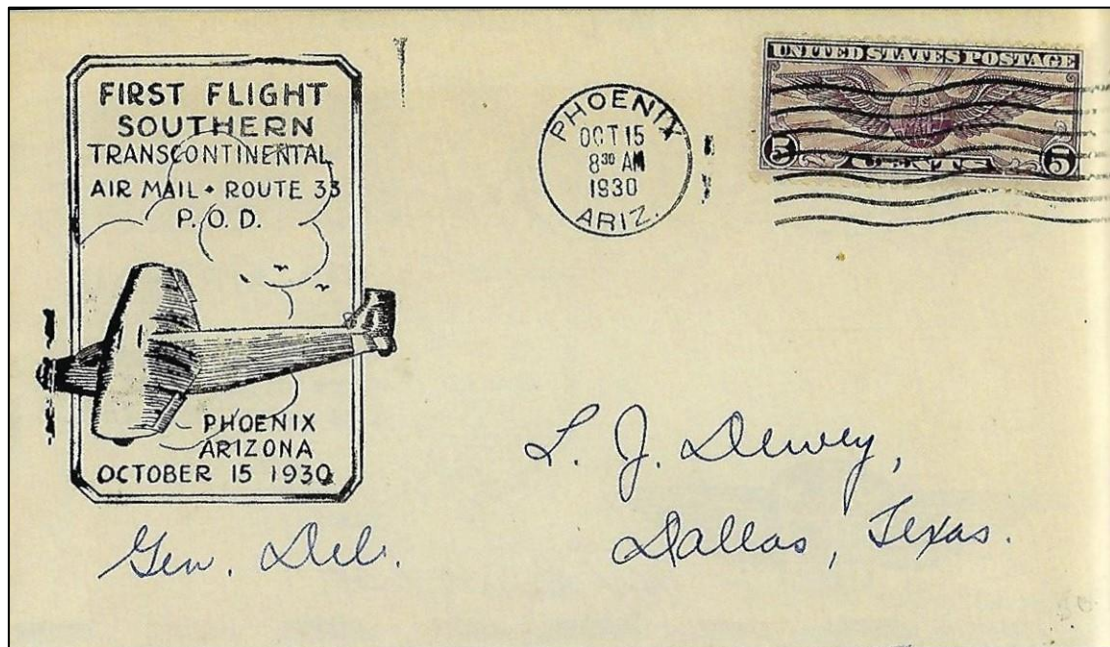 FIRST FLIGHT
SOUTHERN
TRANSCONTINENTAL
AIR MAIL • ROUTE 33
P. O. D.
PHOENIX
ARIZONA
OCTOBER 15 1930
PHOENIX
OCT 15
8 30 AM
1930
ARIZ.
UNITED STATES POSTAGE
U S
MAIL
5 CENTS 5
L. J. Dewey,
Dallas, Texas.
Gen. Del.